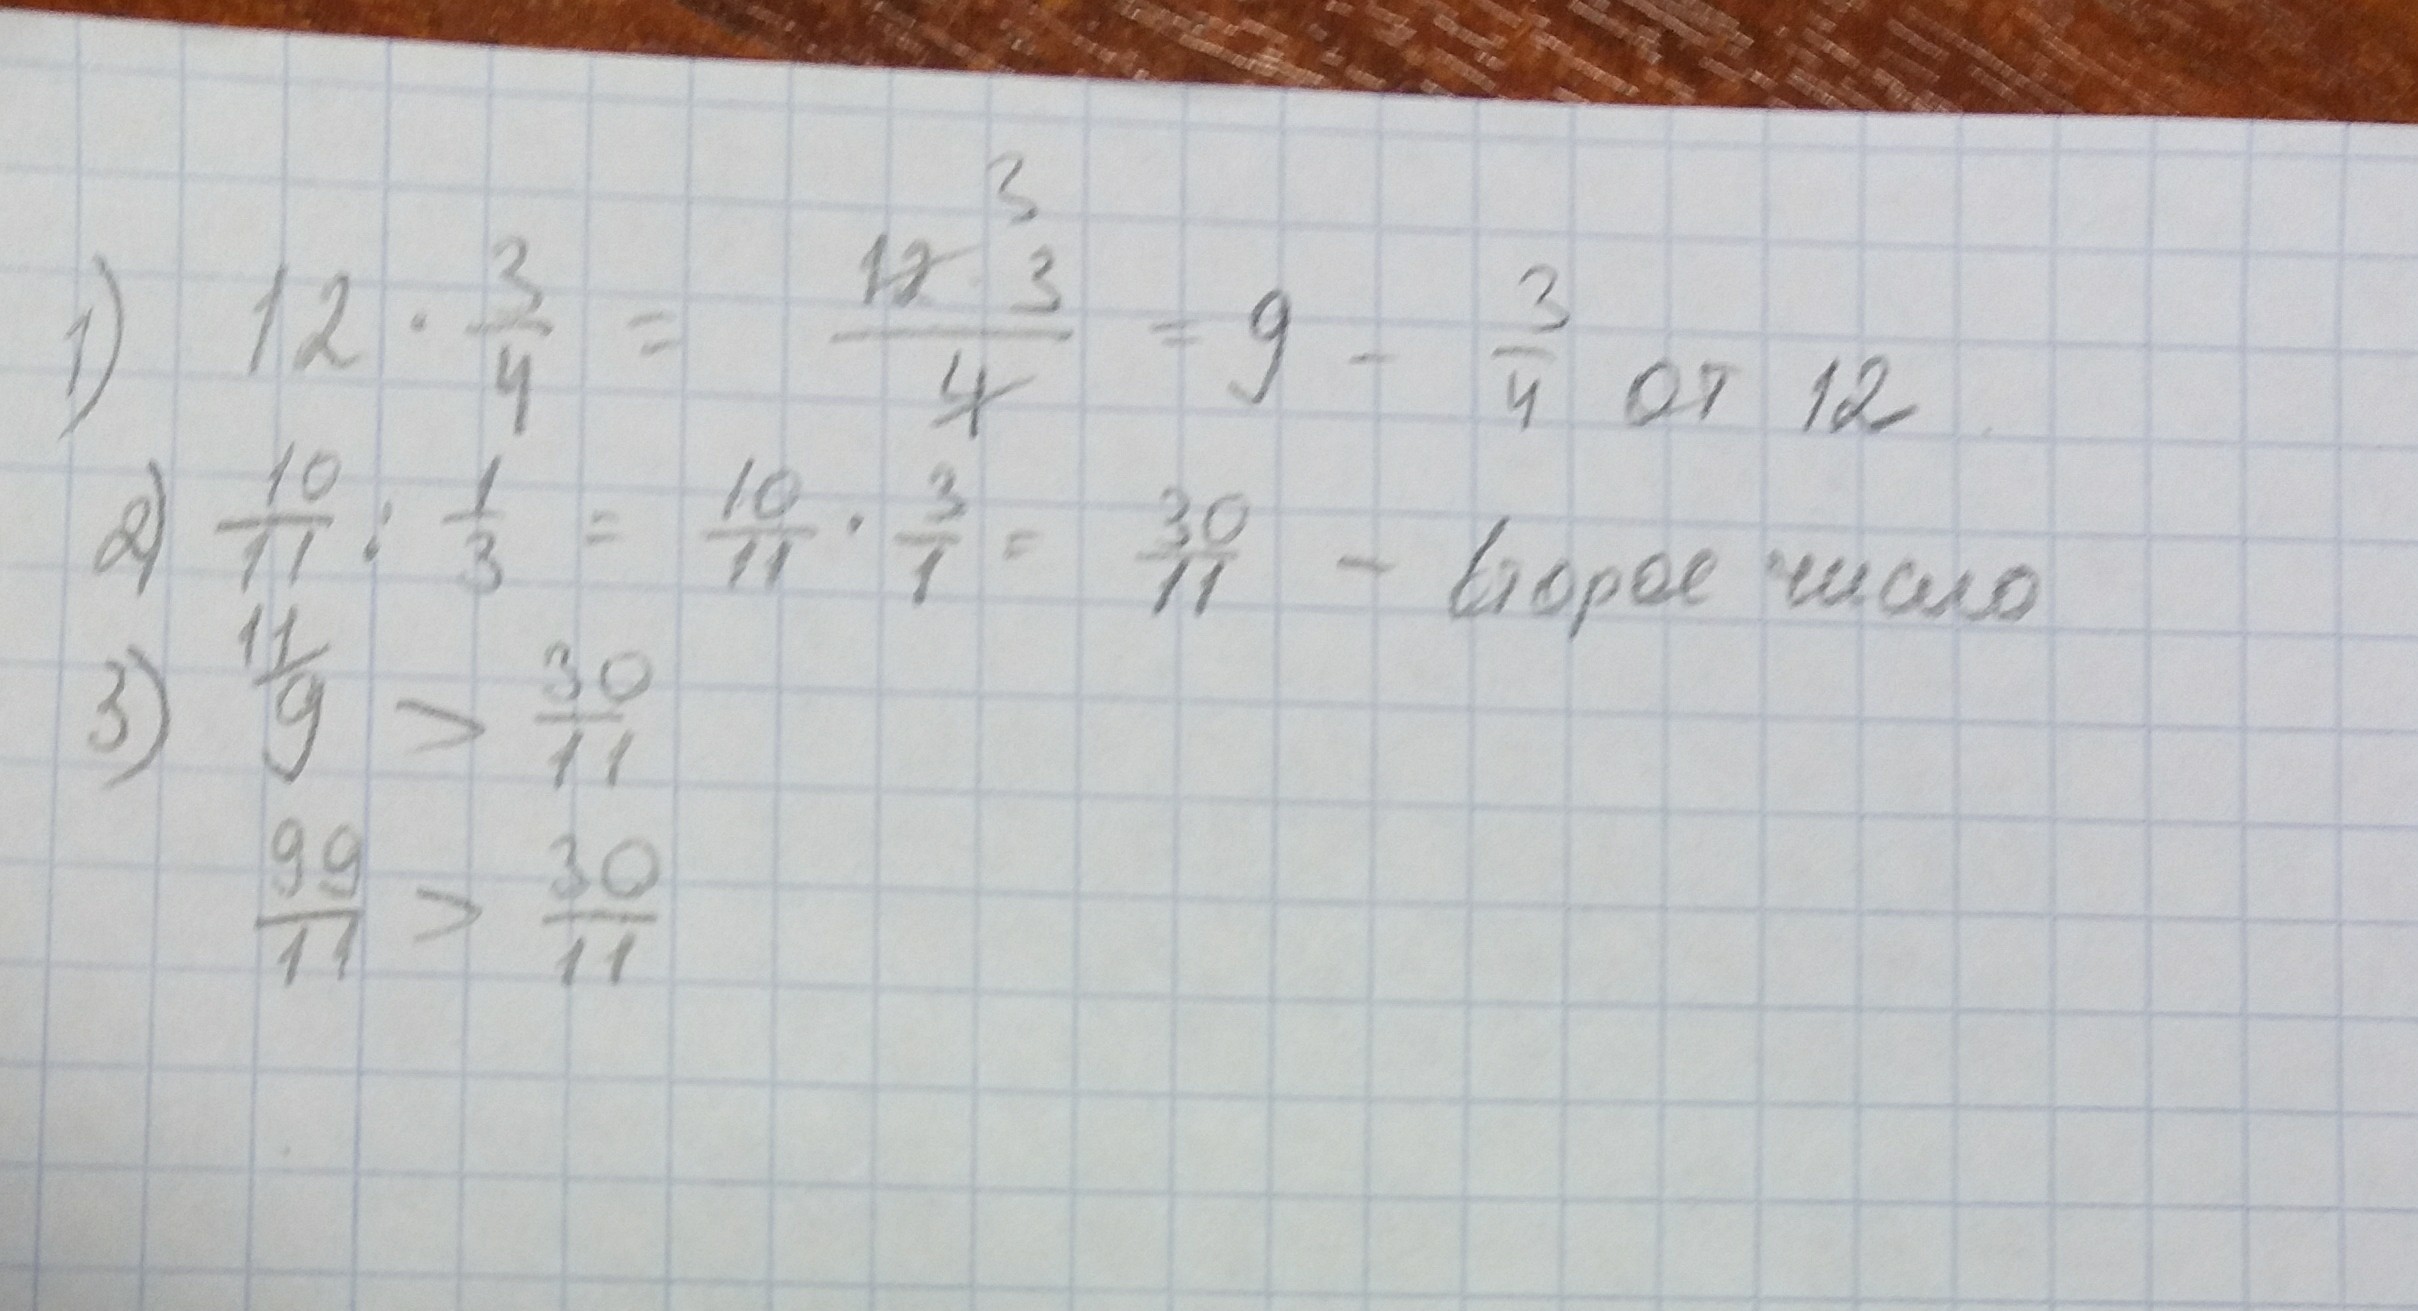 1) 12 · 3/4 = 12 · 3/4 = 9 - 3/4 от 12
3
2) 10/11 : 1/3 = 10/11 · 3/1 = 30/11 - второе число
3) 11/ 9 > 30/11
99/11 > 30/11